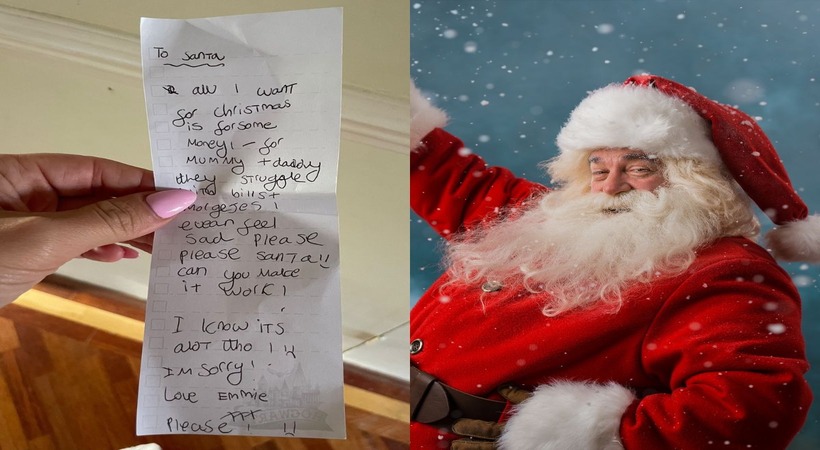 To Santa
all I want
for christmas
is for some
Money! - for
mummy + daddy
they struggle
with bills +
morgeses I
evean feel
sad Please
please santa!!
can you make
it work!
I know its
alot tho !
I'm sorry!
Love Emmie
Please !